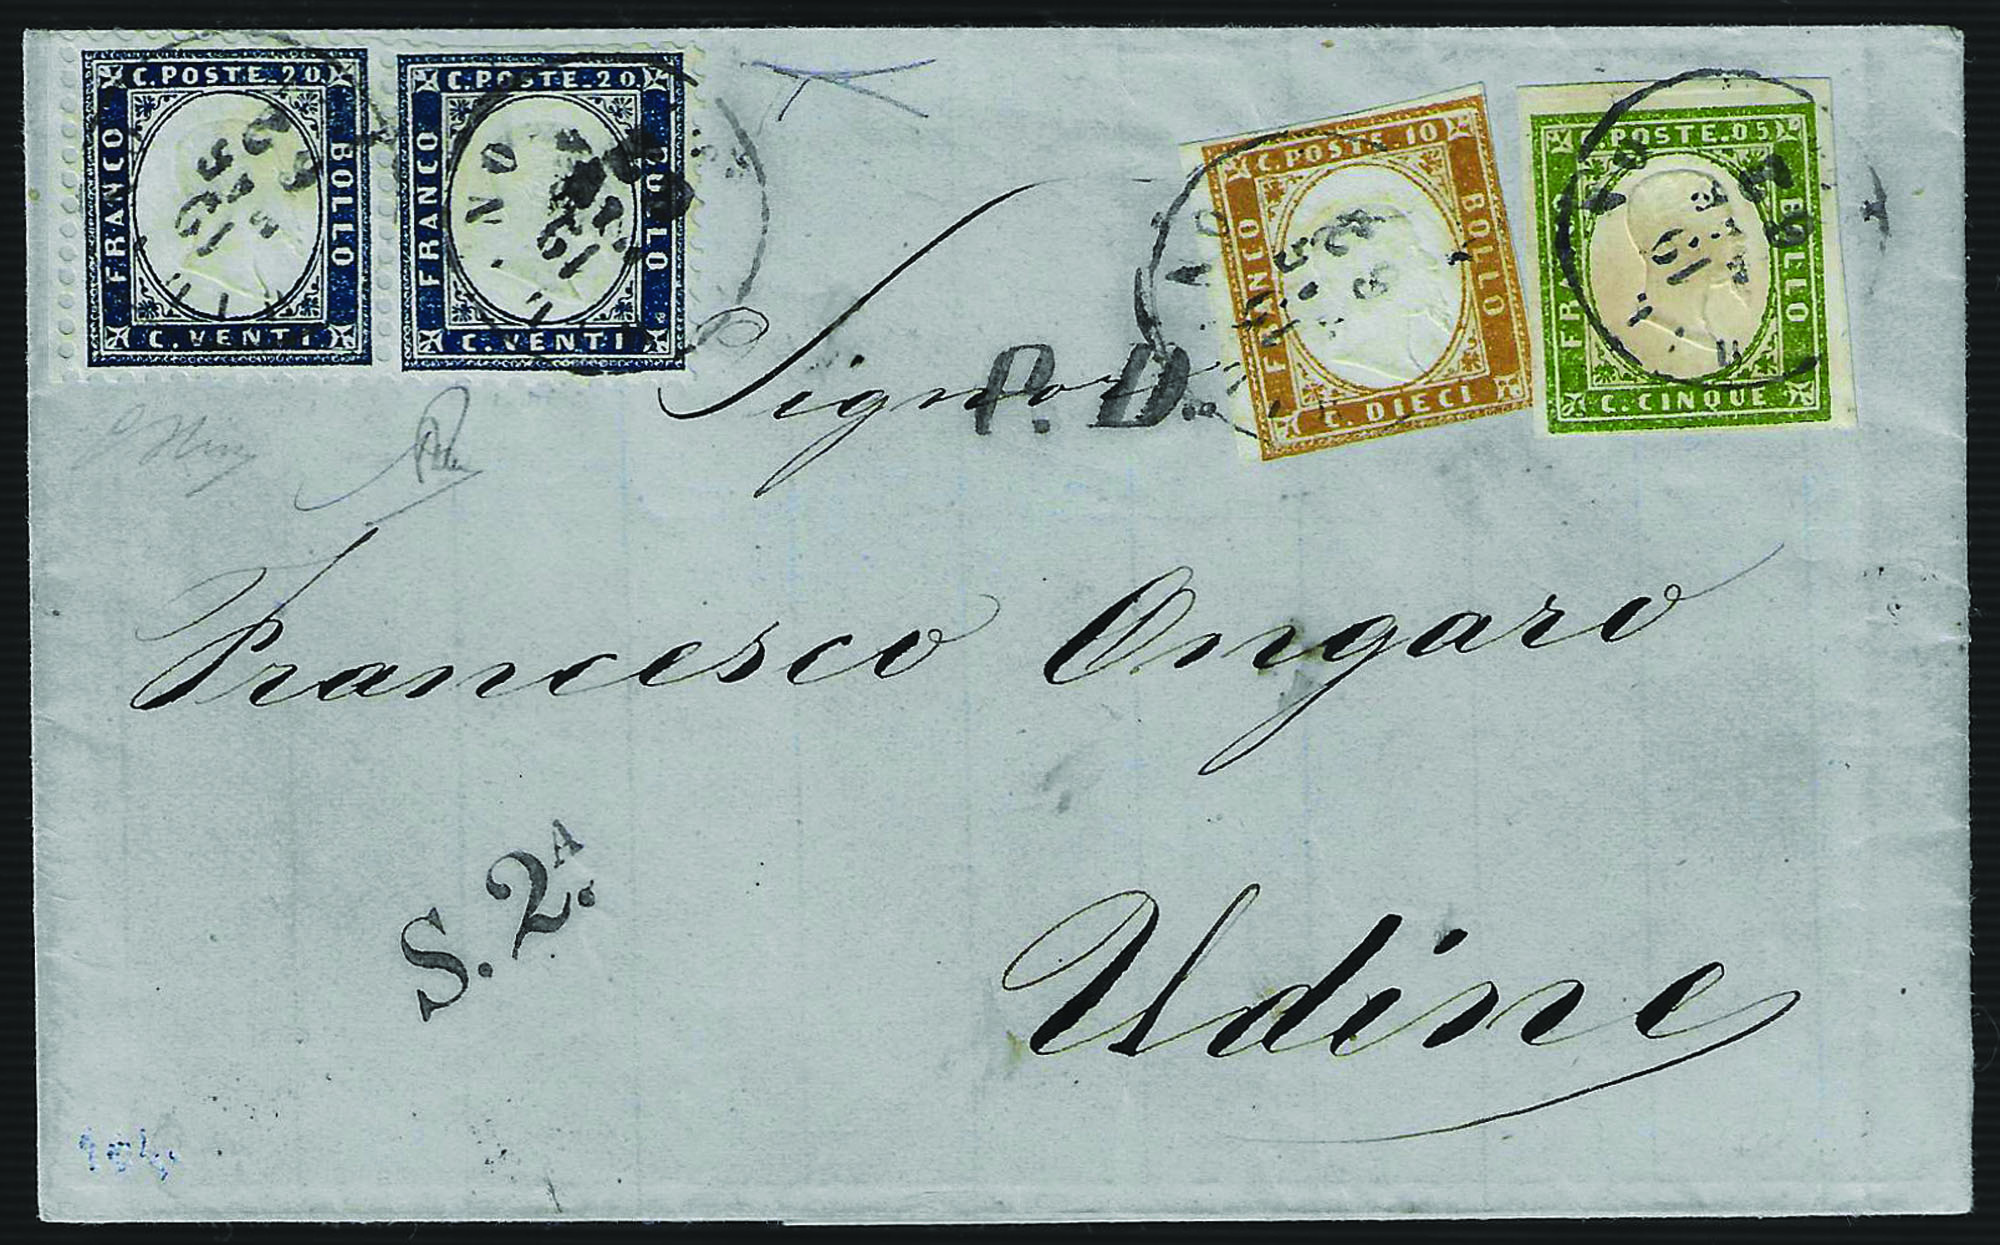 C. POSTE. 20
FRANCO
BOLLO
C. VENTI
C. POSTE. 20
FRANCO
BOLLO
C. VENTI
C. POSTE. 10
FRANCO
BOLLO
C. DIECI
C. POSTE. 05
BOLLO
C. CINQUE
Signor
P. D.
Francesco Ongaro
S. 2.A
Udine